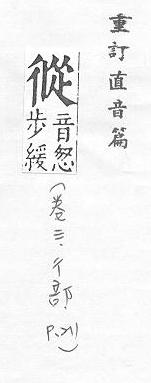 重訂直音篇
從
音怒
步緩
(卷三·彳部.
P.21)